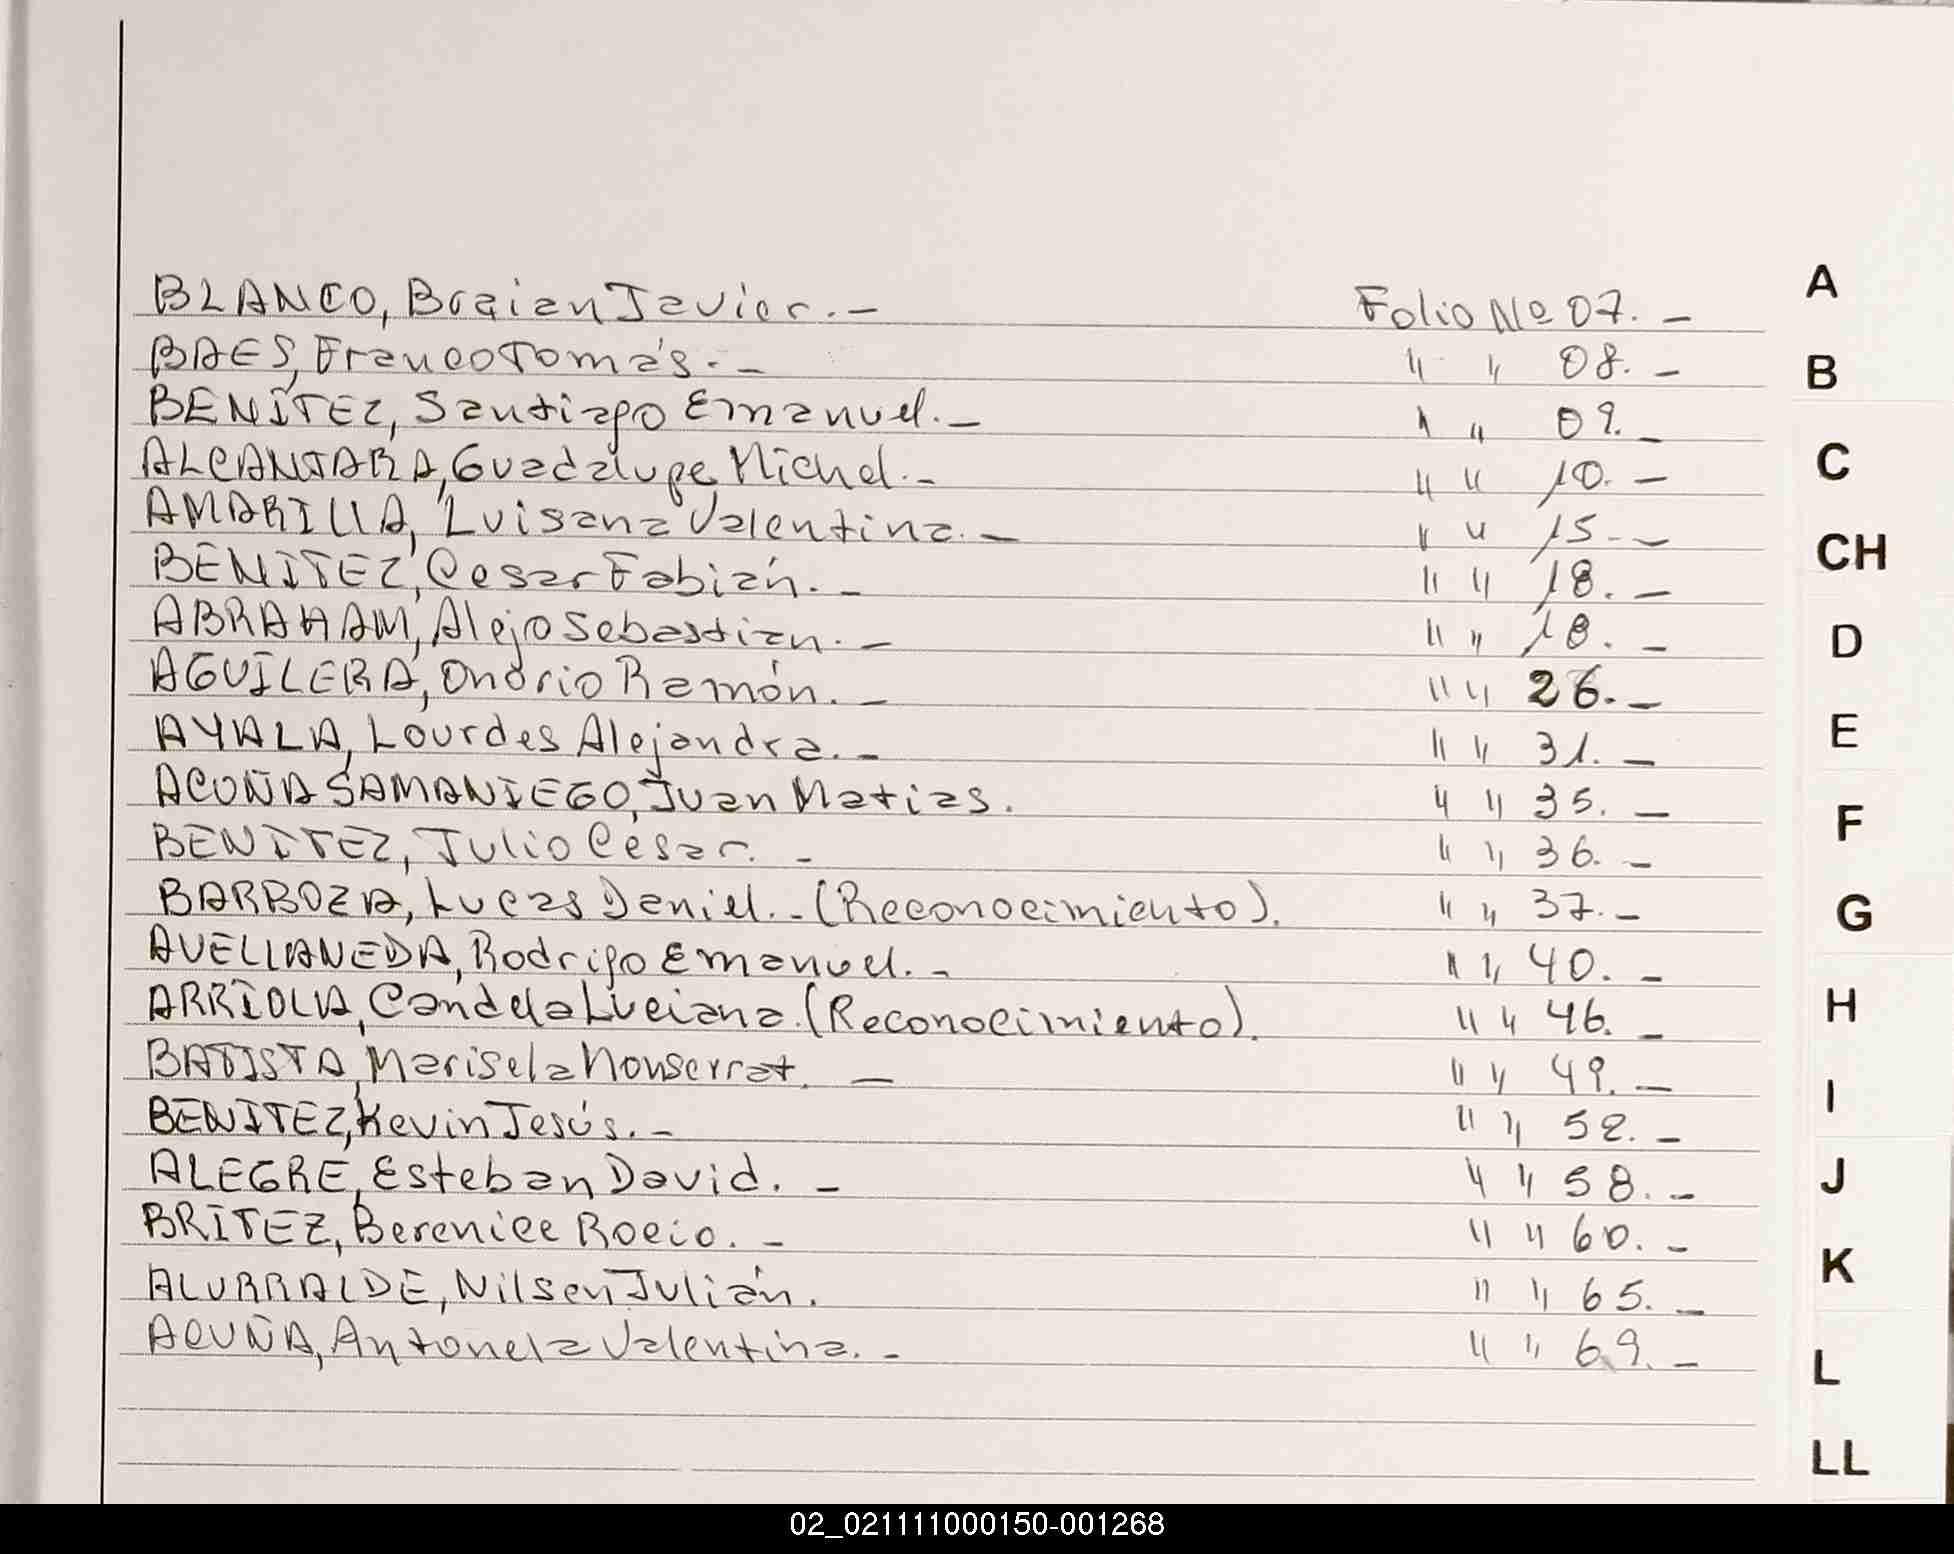 BLANCO, Braian Javier. — Folio Nº 07. —
BAES, Franco Tomás. — " " 08. —
BENÍTEZ, Santiago Emanuel. — " " 09. —
ALCANTARA, Guadalupe Michel. — " " 10. —
AMARILLA, Luisana Valentina. — " " 15. —
BENITEZ, Cesar Fabián. — " " 18. —
ABRAHAM, Alejo Sebastian. — " " 18. —
AGUILERA, Onorio Ramón. — " " 26. —
AYALA, Lourdes Alejandra. — " " 31. —
ACUÑA SAMANIEGO, Juan Matias. " " 35. —
BENITEZ, Julio Cesar. — " " 36. —
BARBOZA, Lucas Daniel. - (Reconocimiento). " " 37. —
AVELLANEDA, Rodrigo Emanuel. — " " 40. —
ARRIOLA, Candela Luciana. (Reconocimiento). " " 46. —
BATISTA, Marisela Monserrat. — " " 49. —
BENITEZ, Kevin Jesús. — " " 52. —
ALEGRE, Esteban David. — " " 58. —
BRITEZ, Berenice Rocio. — " " 60. —
ALURRALDE, Nilsen Julián. " " 65. —
ACUÑA, Antonela Valentina. — " " 69. —
A
B
C
CH
D
E
F
G
H
I
J
K
L
LL
02_021111000150-001268